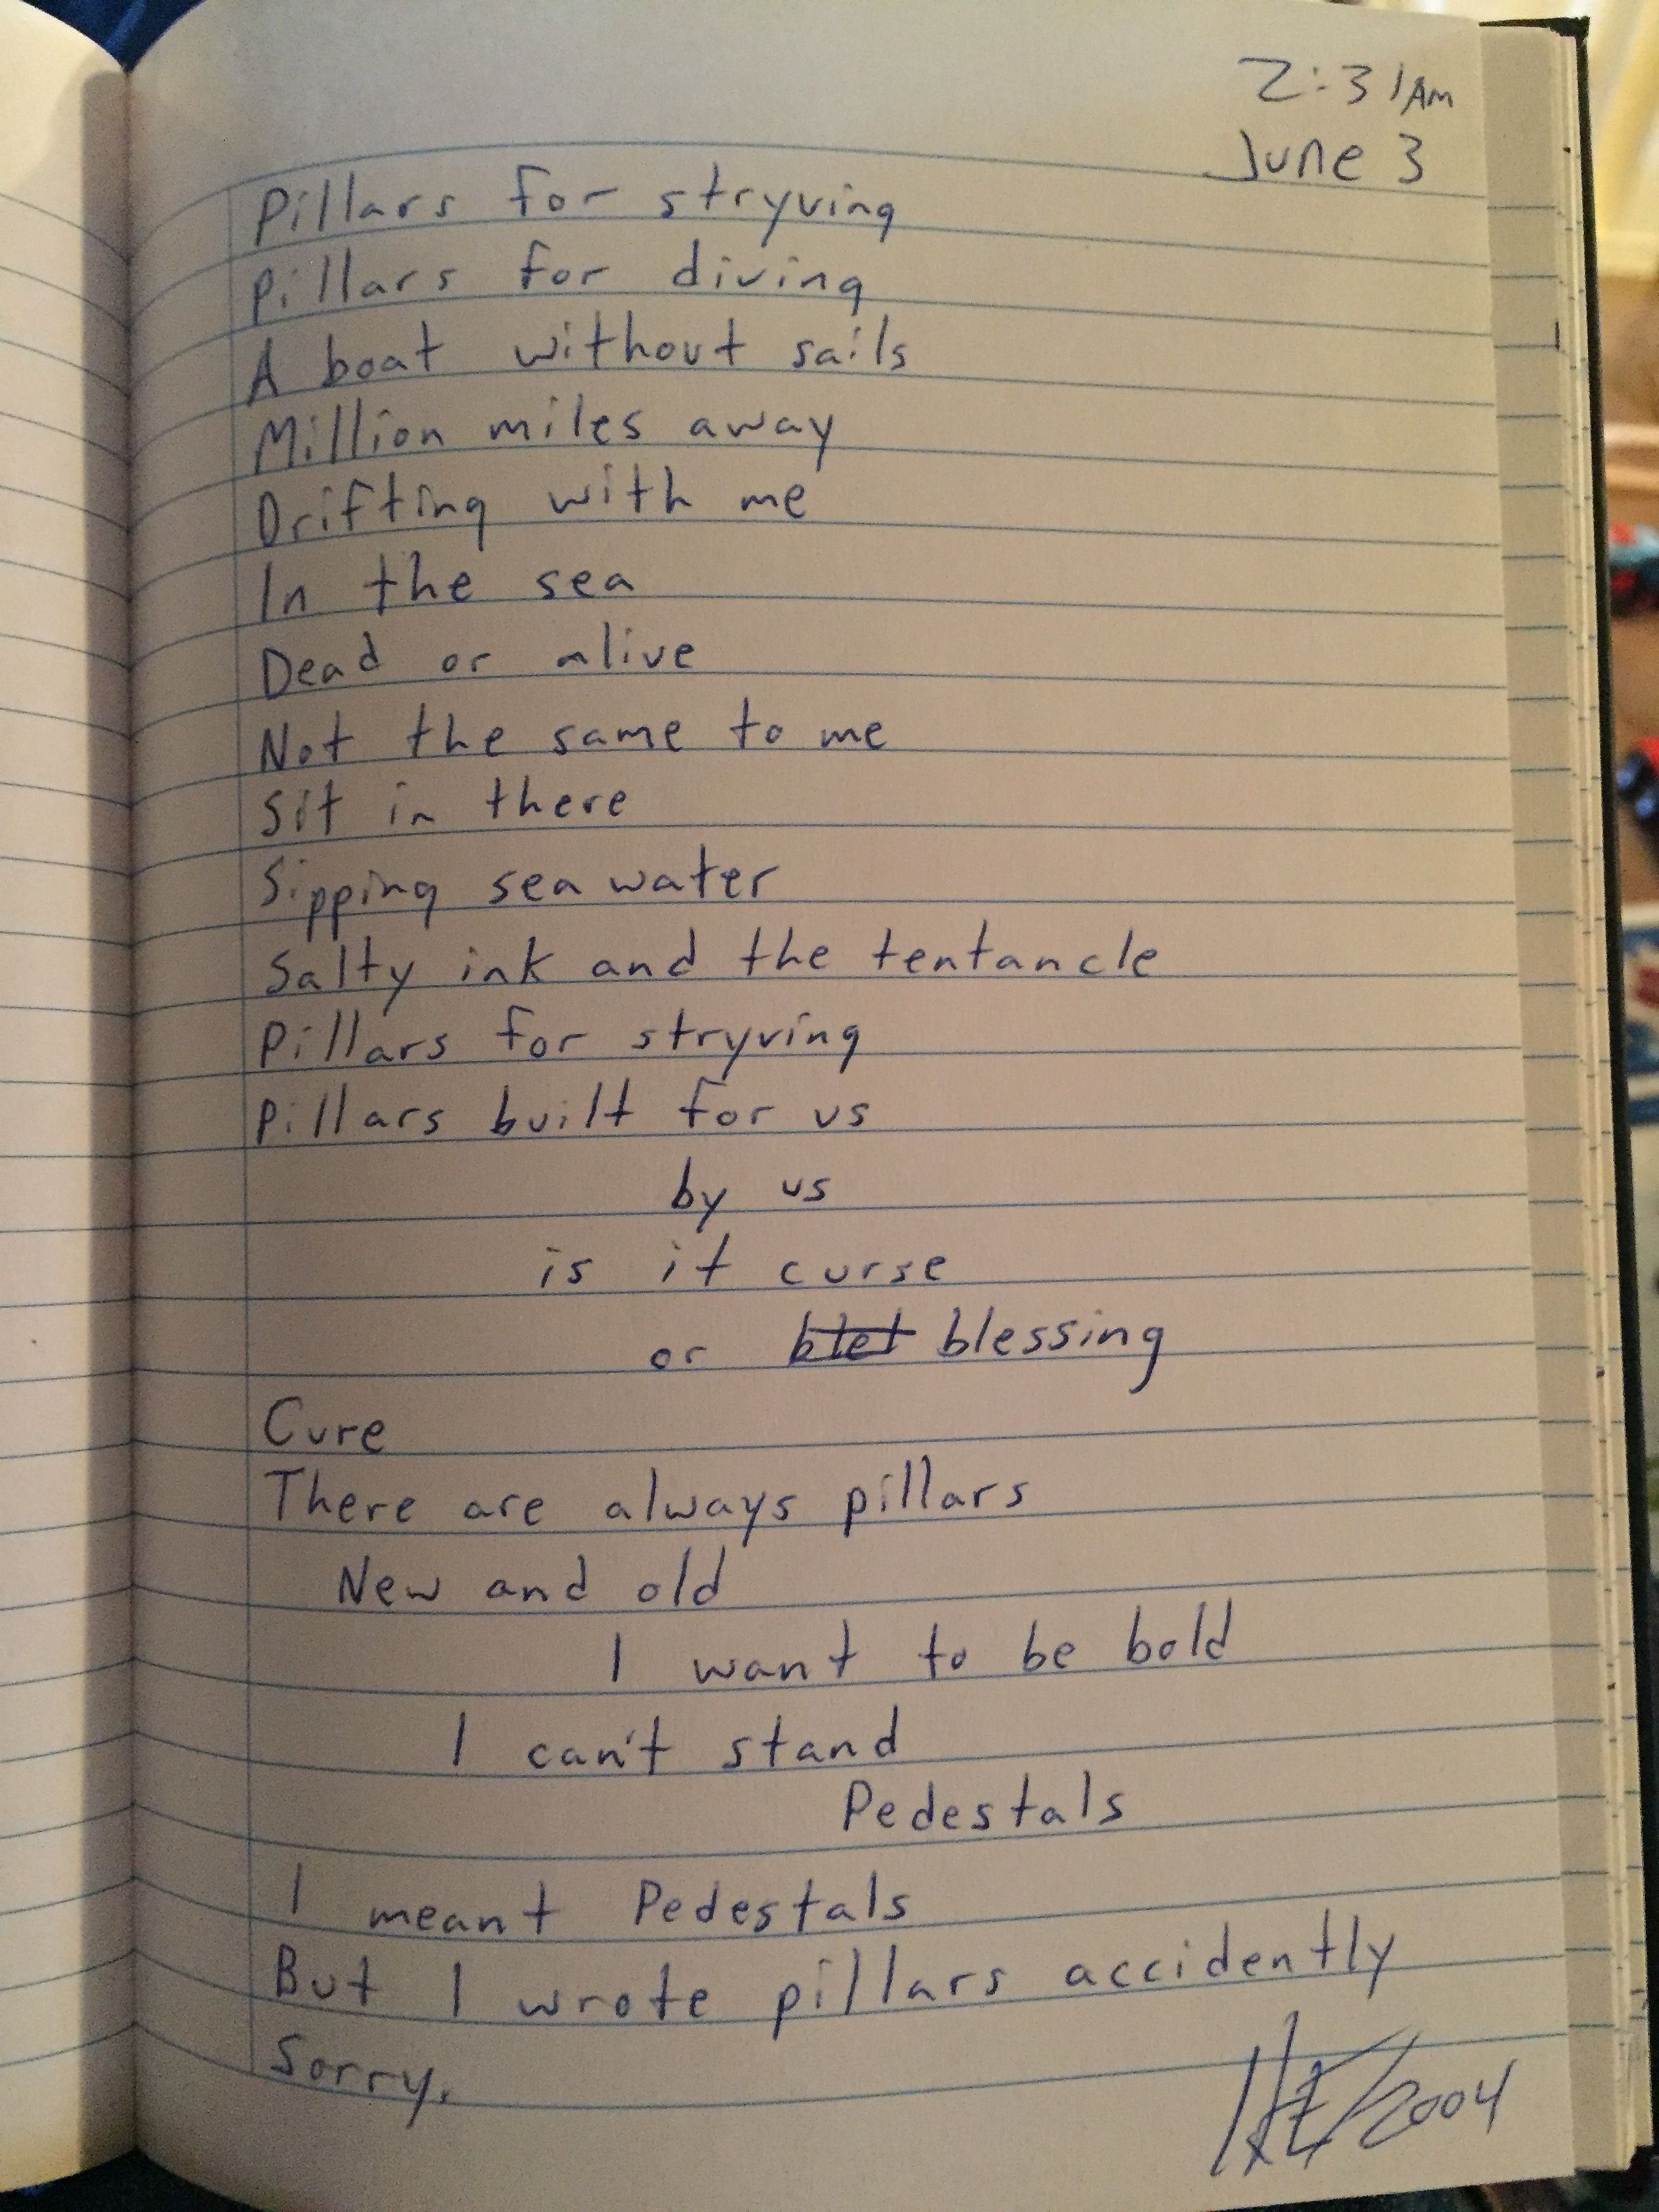 2:31AM
June 3
Pillars for stryving
Pillars for diving
A boat without sails
Million miles away
Drifting with me
In the sea
Dead or alive
Not the same to me
Sit in there
Sipping sea water
Salty ink and the tentancle
Pillars for stryving
Pillars built for us
by us
is it curse
or blessing
Cure
There are always pillars
New and old
I want to be bold
I can't stand
Pedestals
I meant Pedestals
But I wrote pillars accidently
Sorry.
2004